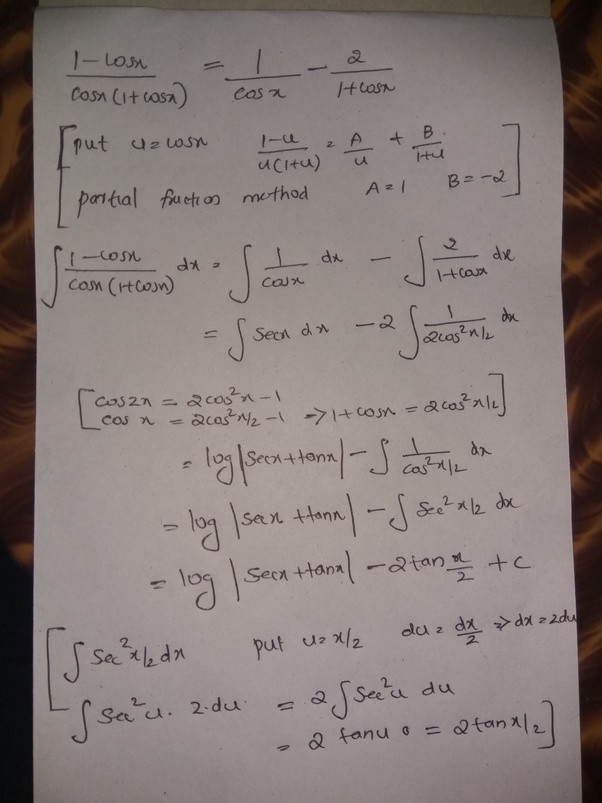 (1-cosx)/(cosx(1+cosx)) = 1/cosx - 2/(1+cosx)
[put u=cosx (1-u)/(u(1+u)) = A/u + B/(1+u)
partial fraction method A=1 B=-2]
∫ (1-cosx)/(cosx(1+cosx)) dx = ∫ 1/cosx dx - ∫ 2/(1+cosx) dx
= ∫ secx dx - 2 ∫ 1/(2cos²x/2) dx
[cos2x = 2cos²x-1
cosx = 2cos²x/2-1 ⇒ 1+cosx = 2cos²x/2]
= log|secx+tanx| - ∫ 1/(cos²x/2) dx
= log|secx+tanx| - ∫ sec²x/2 dx
= log|secx+tanx| - 2tan x/2 + c
[∫ sec²x/2 dx put u=x/2 du = dx/2 ⇒ dx=2du
∫ sec²u. 2.du = 2∫ sec²u du
= 2 tanu = 2tanx/2]